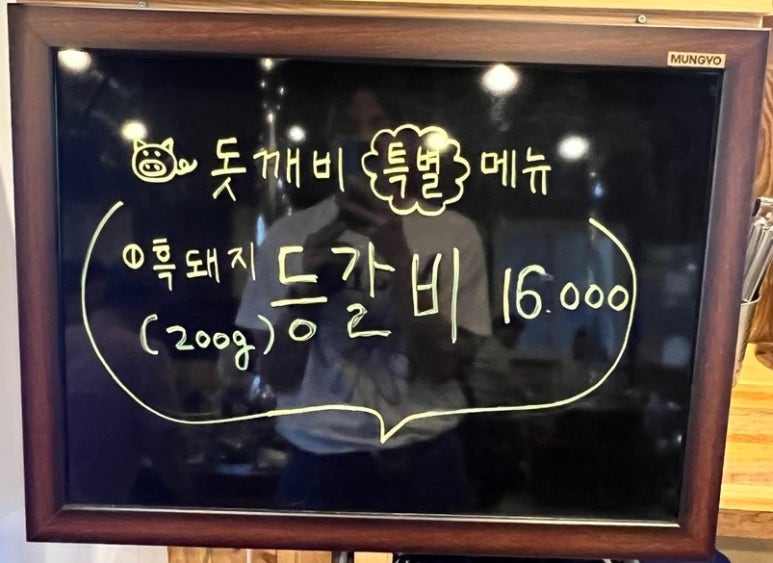 MUNGYO
돗깨비 특별 메뉴
①흑돼지 등갈비 16.000
(200g)